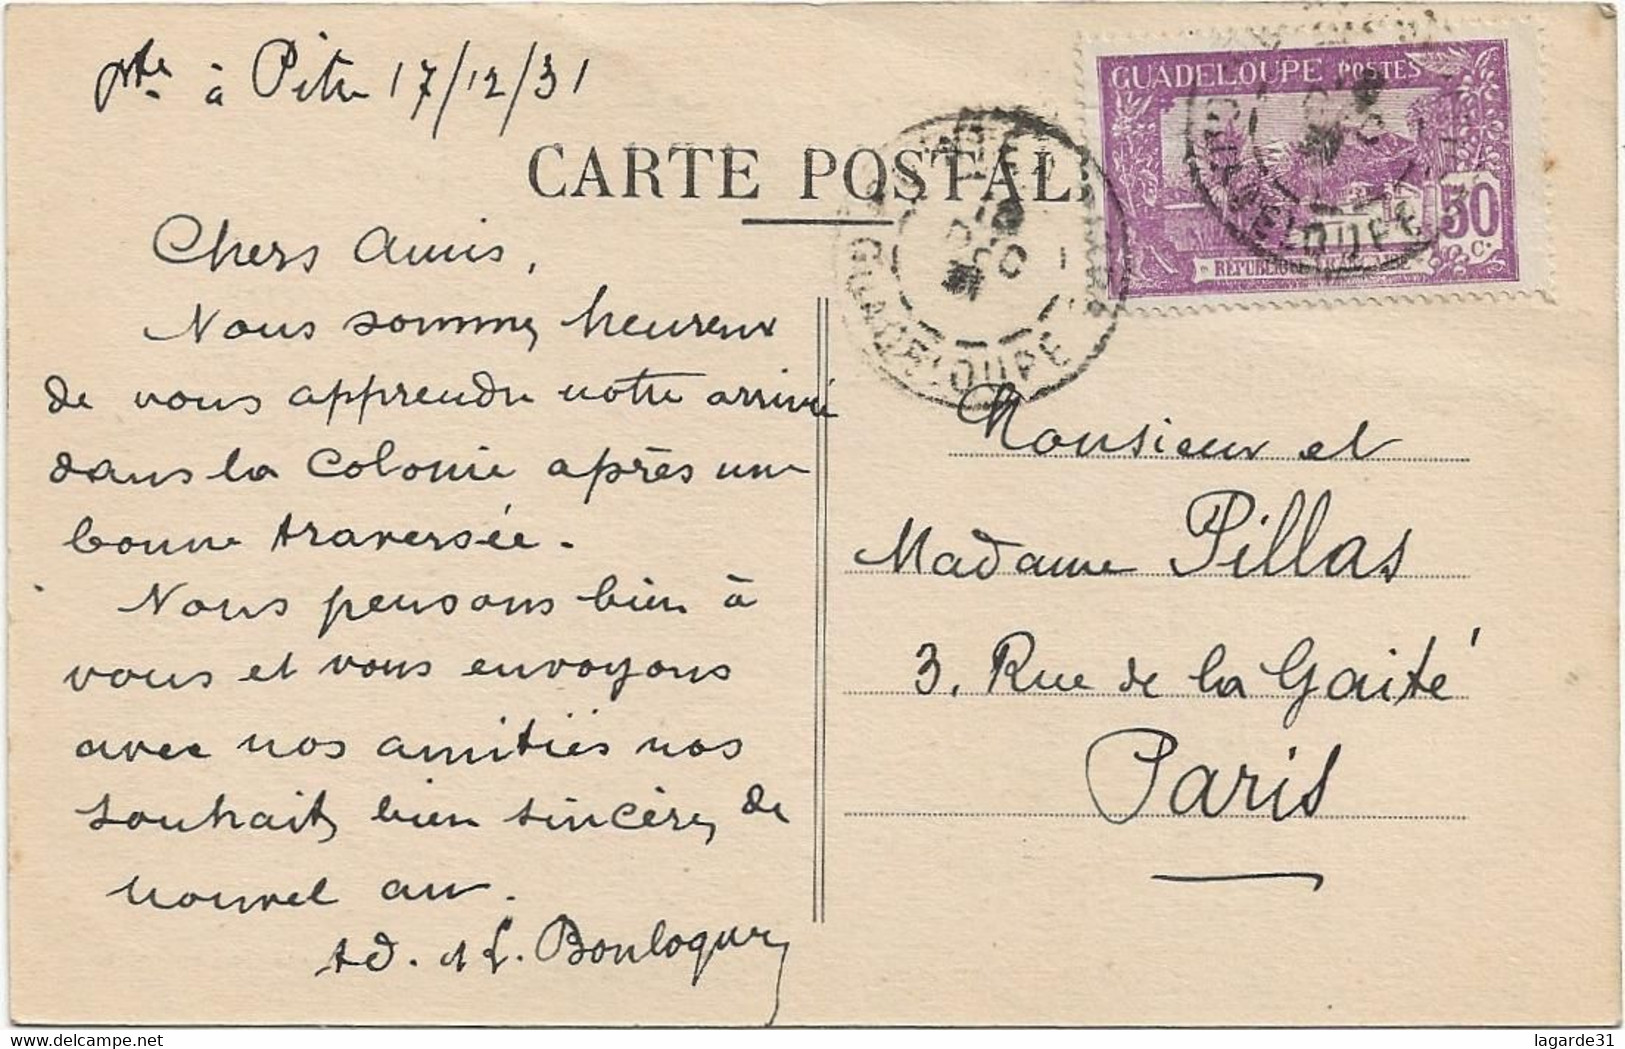 Pte à Pitre 17/12/31
CARTE POSTALE
GUADELOUPE POSTES
50 c.
REPUBLIQUE FRANÇAISE
DEC
GUADELOUPE
GUADELOUPE
Chers Amis,
Nous sommes heureux
de vous apprendre notre arrivée
dans la colonie après une
bonne traversée.
Nous pensons bien à
vous et vous envoyons
avec nos amitiés nos
souhaits bien sincères de
nouvel an.
Ad. et L. Boulogne
Monsieur et
Madame Pillas
3, Rue de la Gaité
Paris
Delcampe.net
lagarde31